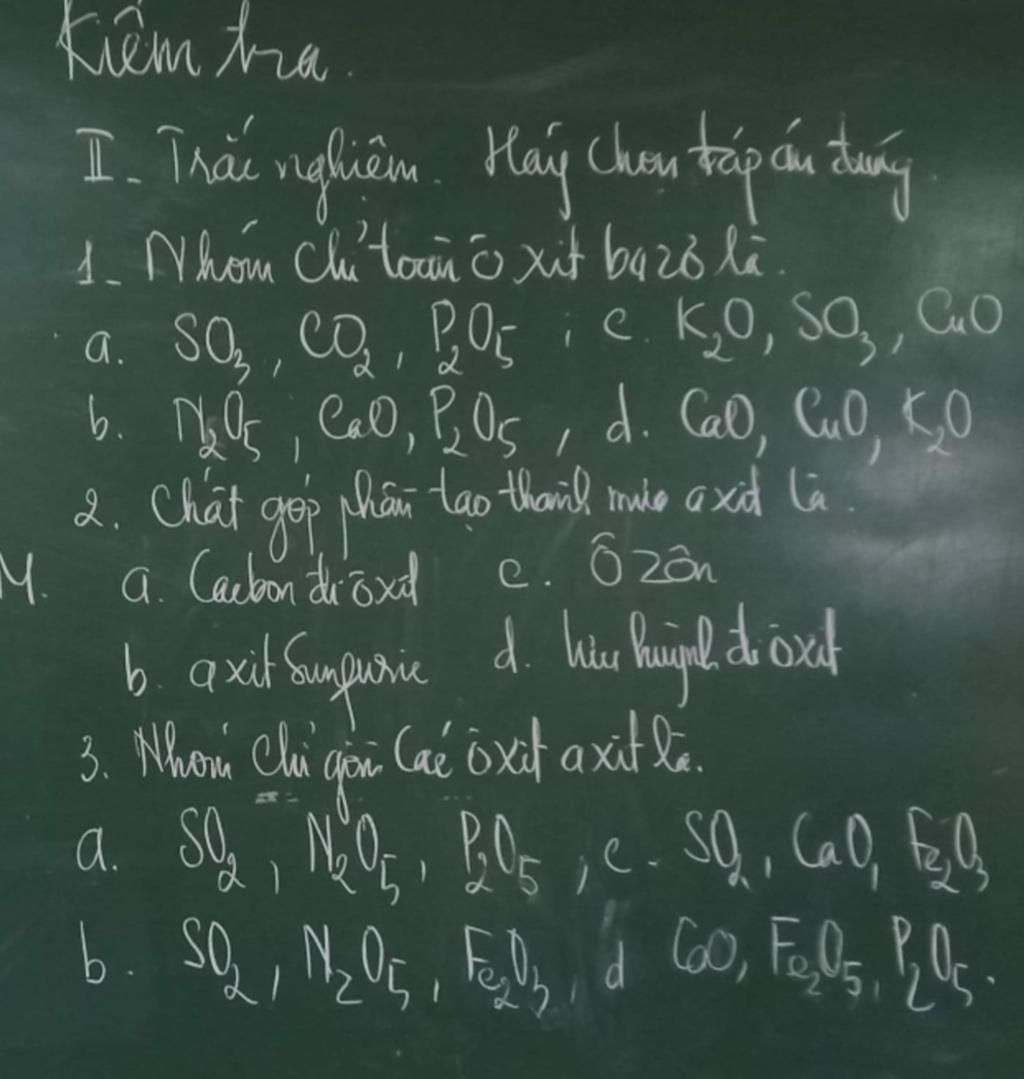 Kiểm tra.
II- Trắc nghiệm. Hãy chọn đáp án đúng.
1- Nhóm chỉ toàn ô xit bazơ là.
a. SO₃, CO₂, P₂O₅ ; c. K₂O, SO₃, CuO
b. N₂O₅, CaO, P₂O₅, d. CaO, CuO, K₂O
2. Chất góp phần tạo thành mưa axit là.
M. a. Cacbon đi ôxit c. Ôzôn
b. axit Sunfuric d. lưu huỳnh đi ôxit
3. Nhóm chỉ gồm các ôxit axit là.
a. SO₂, N₂O₅, P₂O₅ ; c- SO₂, CaO, Fe₂O₃
b. SO₂, N₂O₅, Fe₂O₃, d CaO, Fe₂O₅, P₂O₅.